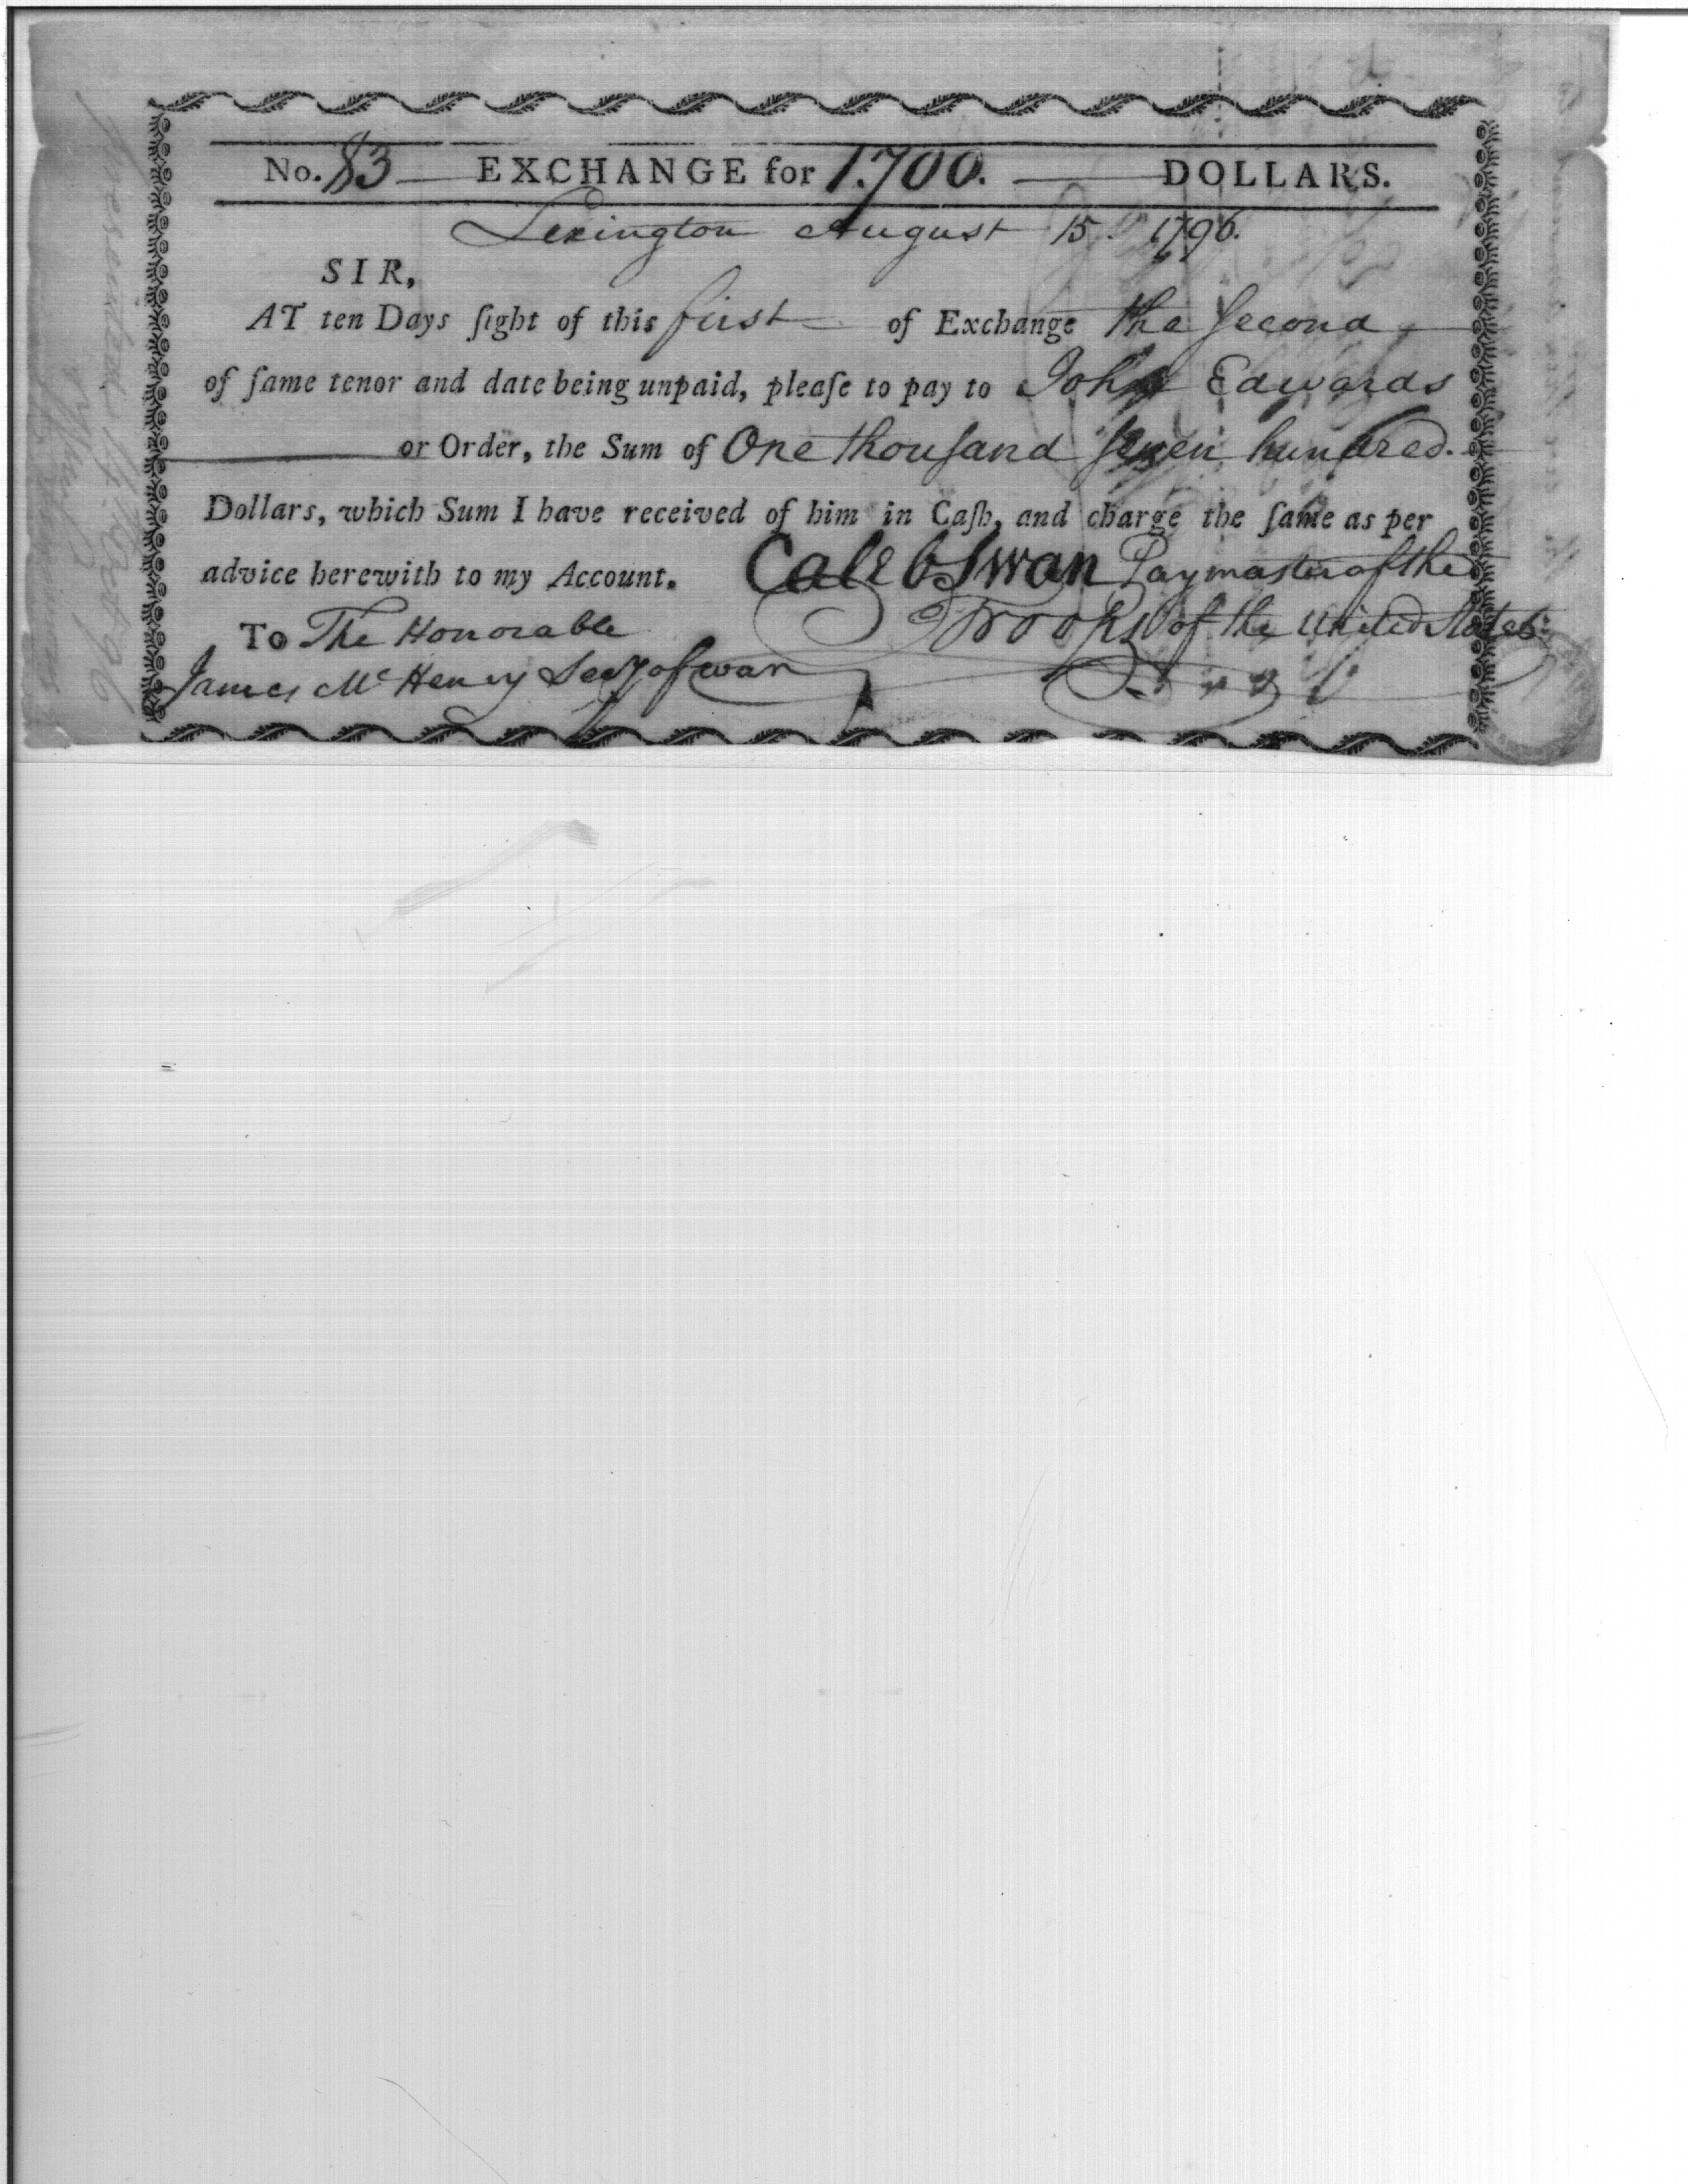 No. 83 EXCHANGE for 1.700. DOLLARS.
Lexington August 15. 1796.
SIR,
AT ten Days ſight of this first of Exchange the ſecond
of ſame tenor and date being unpaid, pleaſe to pay to John Edwards
or Order, the Sum of One thouſand ſeven hundred.
Dollars, which Sum I have received of him in Caſh, and charge the ſame as per
advice herewith to my Account. Caleb Swan Paymaster of the
To The Honorable Troops of the United States
James McHenry Secy of war